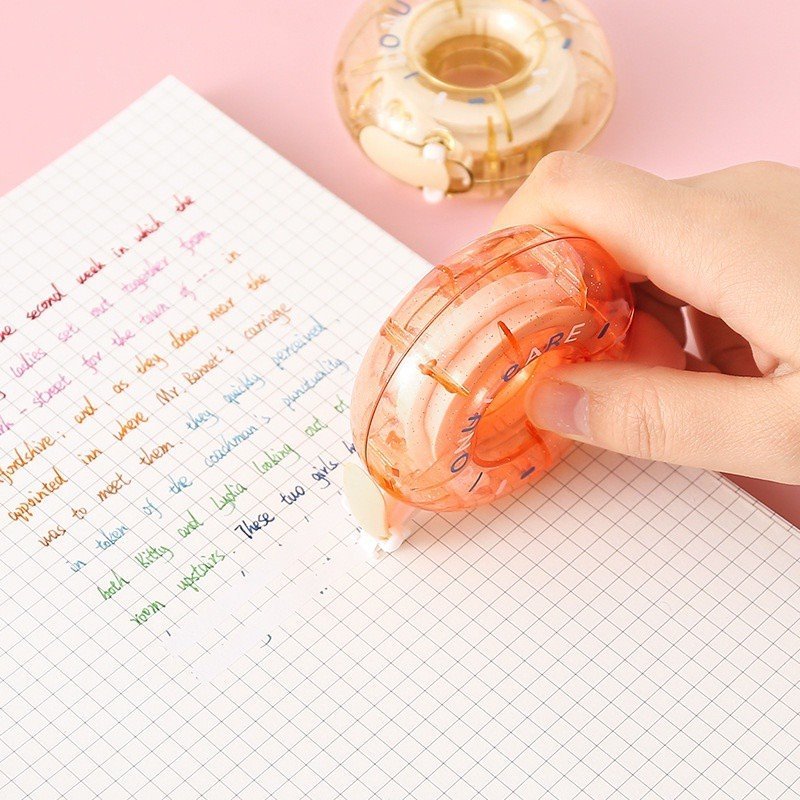 the second week in which the
ladies set out together from
street for the town of --- in
fordshire; and as they drew near the
appointed inn where Mr. Bennet's carriage
was to meet them they quickly perceived,
in token of the coachman's punctuality
both Kitty and Lydia looking out of
room upstairs. These two girls
YOU CARE